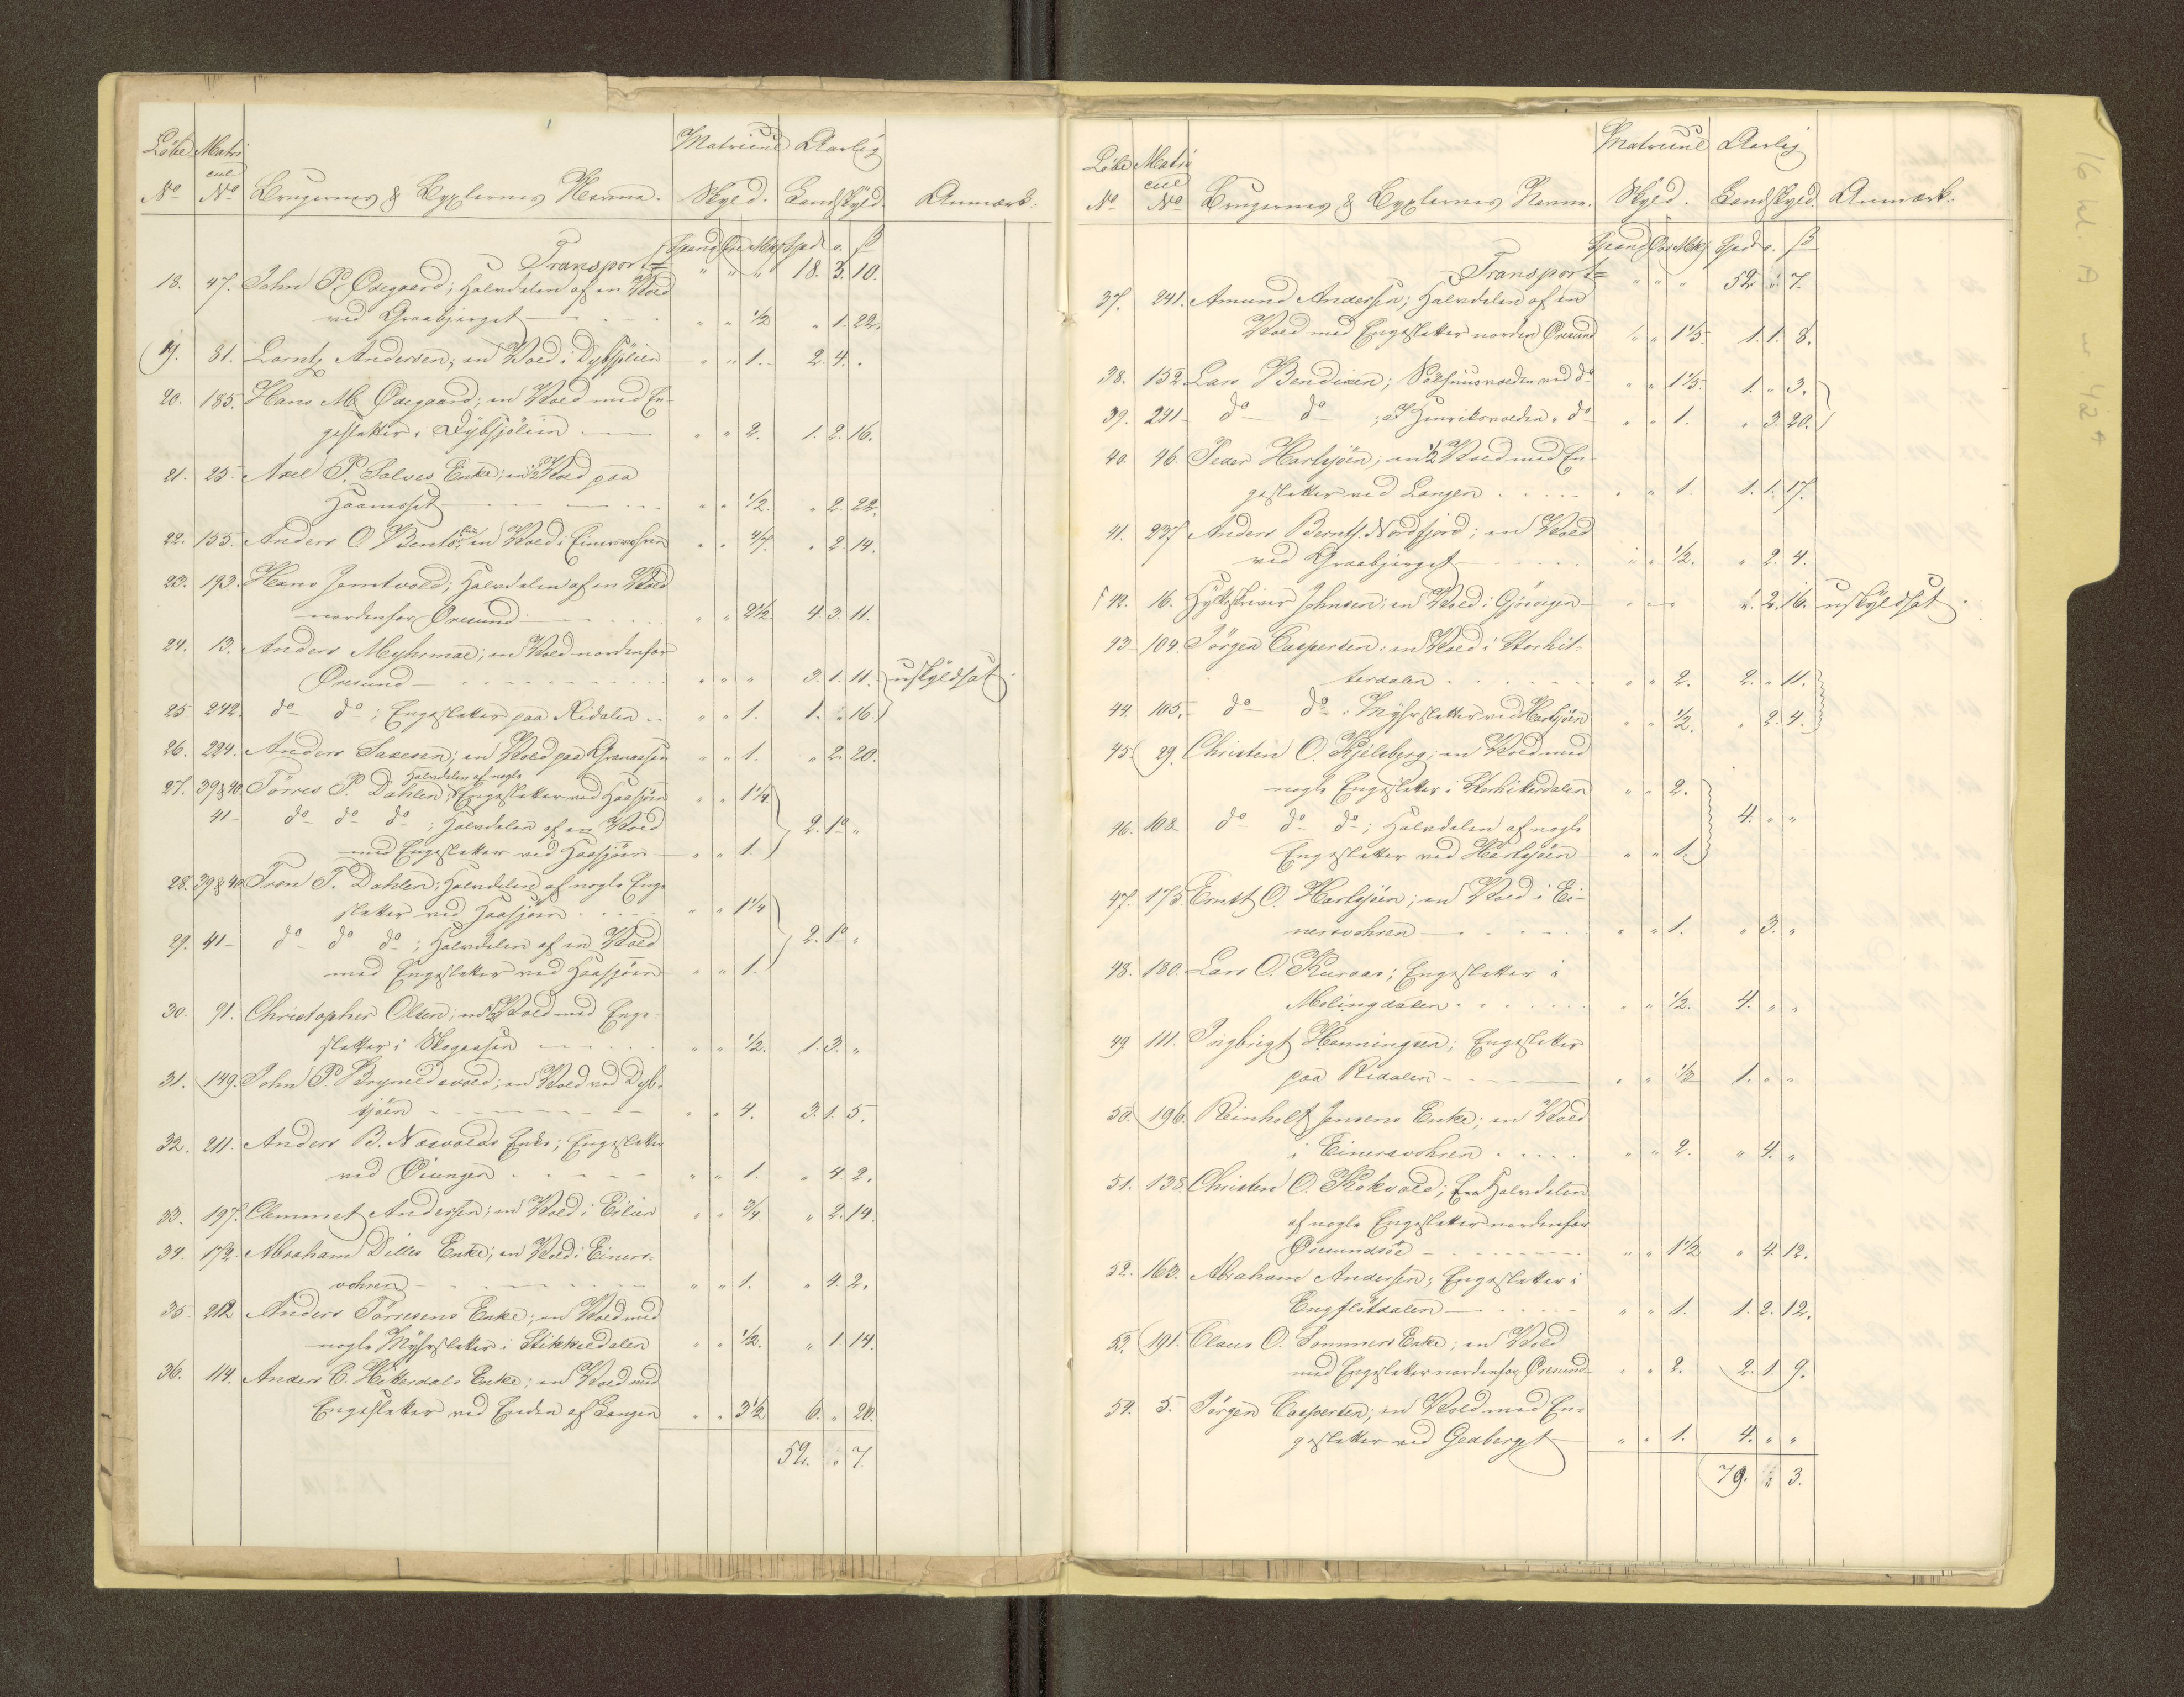 Løbe Matri Matricul Aarlig
cul
No No Brugernes & Pladsernes Navne. Skyld. Landskyld. Anmærk.
Spand Øre Mkl Spd o. ß
Transport= " " " 18. 3. 10.
18. 47. John P. Ødegaard; Halvdelen af en Vold
ved Graabjerget - - - " " 1/2 " 1. 22.
19. 81. Lorntz Andersen; en Vold i Dybsjölien " " 1. 2. 4. "
20. 185. Hans M. Ødegaard; en Vold med En-
geslætter i Dybsjölien " " 2. 1. 2. 16.
21. 25. Axel P. Solves Enke; en 1/2 Vold paa
" " 1/2. " 2. 22.
22. 155. Anders O. en Vold i " " " 2. 14.
23. 193. Hans Jemtvold; Halvdelen af en Vold
nordenfor Øresund " " 2 1/2. 4. 3. 11.
24. 13. Anders Myhrmoe; en Vold nordenfor
Øresund " " " 3. 1. 11. uskyldsat.
25. 242. do do; Engeslætter paa Ridalen " " 1. 1. " 16.
26. 224. Anders Saxesen; en Vold paa Granaasen " " 1. " 2. 20.
Halvdelen af nogle
27. 39&40. Törres P. Dahlen; Engeslætter ved Haasjöen " " 1 1/4.
41 do do do; Halvdelen af en Vold 2. 1. "
med Engeslætter ved Haasjöen " " 1.
28. 39&40 Tron T. Dahlen; Halvdelen af nogle Enge-
slætter ved Haasjöen " " 1 1/4
29. 41 do do do; Halvdelen af en Vold 2. 1. "
med Engeslætter ved Haasjöen " " 1.
30. 91. Christopher Olsen; en 1/2 Vold med Enge-
slætter i Skogaasen " " 1/2. 1. 3. "
31. 149. John P. Brynildsvold; en Vold ved Dyb-
sjöen " " 4. 3. 1. 5.
32. 211. Anders B. Næsvolds Enke; Engeslætter
ved Öiungen " " 1. " 4. 2.
33. 197. Clemmet Andersen; en Vold i " " 3/4. " 2. 14.
34. 172. Abraham Dilles Enke; en Vold i Einers-
vohren " " 1. " 4. 2.
35. 212 Anders Törresens Enke; en Vold med
nogle Myhrslætter i Stikkildalen " " 1/2. " 1. 14.
36. 114. Anders C. Hitterdals Enke; en Vold med
Engeslætter ved Enden af Langen " " 3 1/2 6. " 20.
52. " 7.
Løbe Matri Matricul Aarlig
cul
No No Brugernes & Pladsernes Navne. Skyld. Landskyld. Anmærk.
Spand Øre Mkl Spd o. ß
Transport= " " " 52 " 7.
37. 241. Amund Andersen; Halvdelen af en
Vold med Engeslætter norden Øresund " " 1 1/3. 1. 1. 8.
38. 152. Lars Bendixen; ved do " " 1 1/3. 1. " 3.
39. 241 do do; Henriksvolden " do " " 1. " 3. 20.
40. 96. Peder Harlsjöen; en 1/2 Vold med En-
geslætter ved Langen " " 1. 1. 1. 17.
41. 237 Anders Bernts. Nordfjord; en Vold
ved Graabjerget " " 1/2. " 2. 4.
42. 16. Hytteskriver Johnsen; en Vold i Gjösvigen " 2. 16. uskyldsat.
43. 104. Jörgen Caspersen; en Vold i Storhit-
terdalen " " 2. 2. " 11.
44. 105. do do; Myhrslætter ved Harlsjöen " " 1/2. " 2. 4.
45. 29. Christen O. Kjelsberg; en Vold med
nogle Engeslætter i Storhitterdalen " " 2.
46. 108 do do do; Halvdelen af nogle 4. " "
Engeslætter ved Harlsjöen " " 1.
47. 175 Ernst O. Harlsjöen; en Vold i Ei-
nersvohren " " 1. " 3. "
48. 180. Lars O. Kuraas; Engeslætter i
Molingdalen " " 1/2. 4. " "
49. 111. Ingbrigt Henningsen; Engeslætter
paa Ridalen " " 1/3 1. " "
50. 196. Reinholt Jensens Enke; en Vold
i Einersvohren " " 2. " 4. "
51. 138. Christen O. Kokvold; Halvdelen
af nogle Engeslætter nordenfor
Øresundsöe " " 1 1/2 " 4. 12.
52. 163. Abraham Andersen; Engeslætter i
Engflötdalen " " 1. 1. 2. 12.
53. 191. Claus O. Sommers Enke; en Vold
med Engeslætter nordenfor Øresund " " 2. 2. 1. 9.
54. 5. Jörgen Caspersen; en Vold med En-
geslætter ved Gedberget " " 1. 4. " "
79. " 3.
16 W A nr. 42